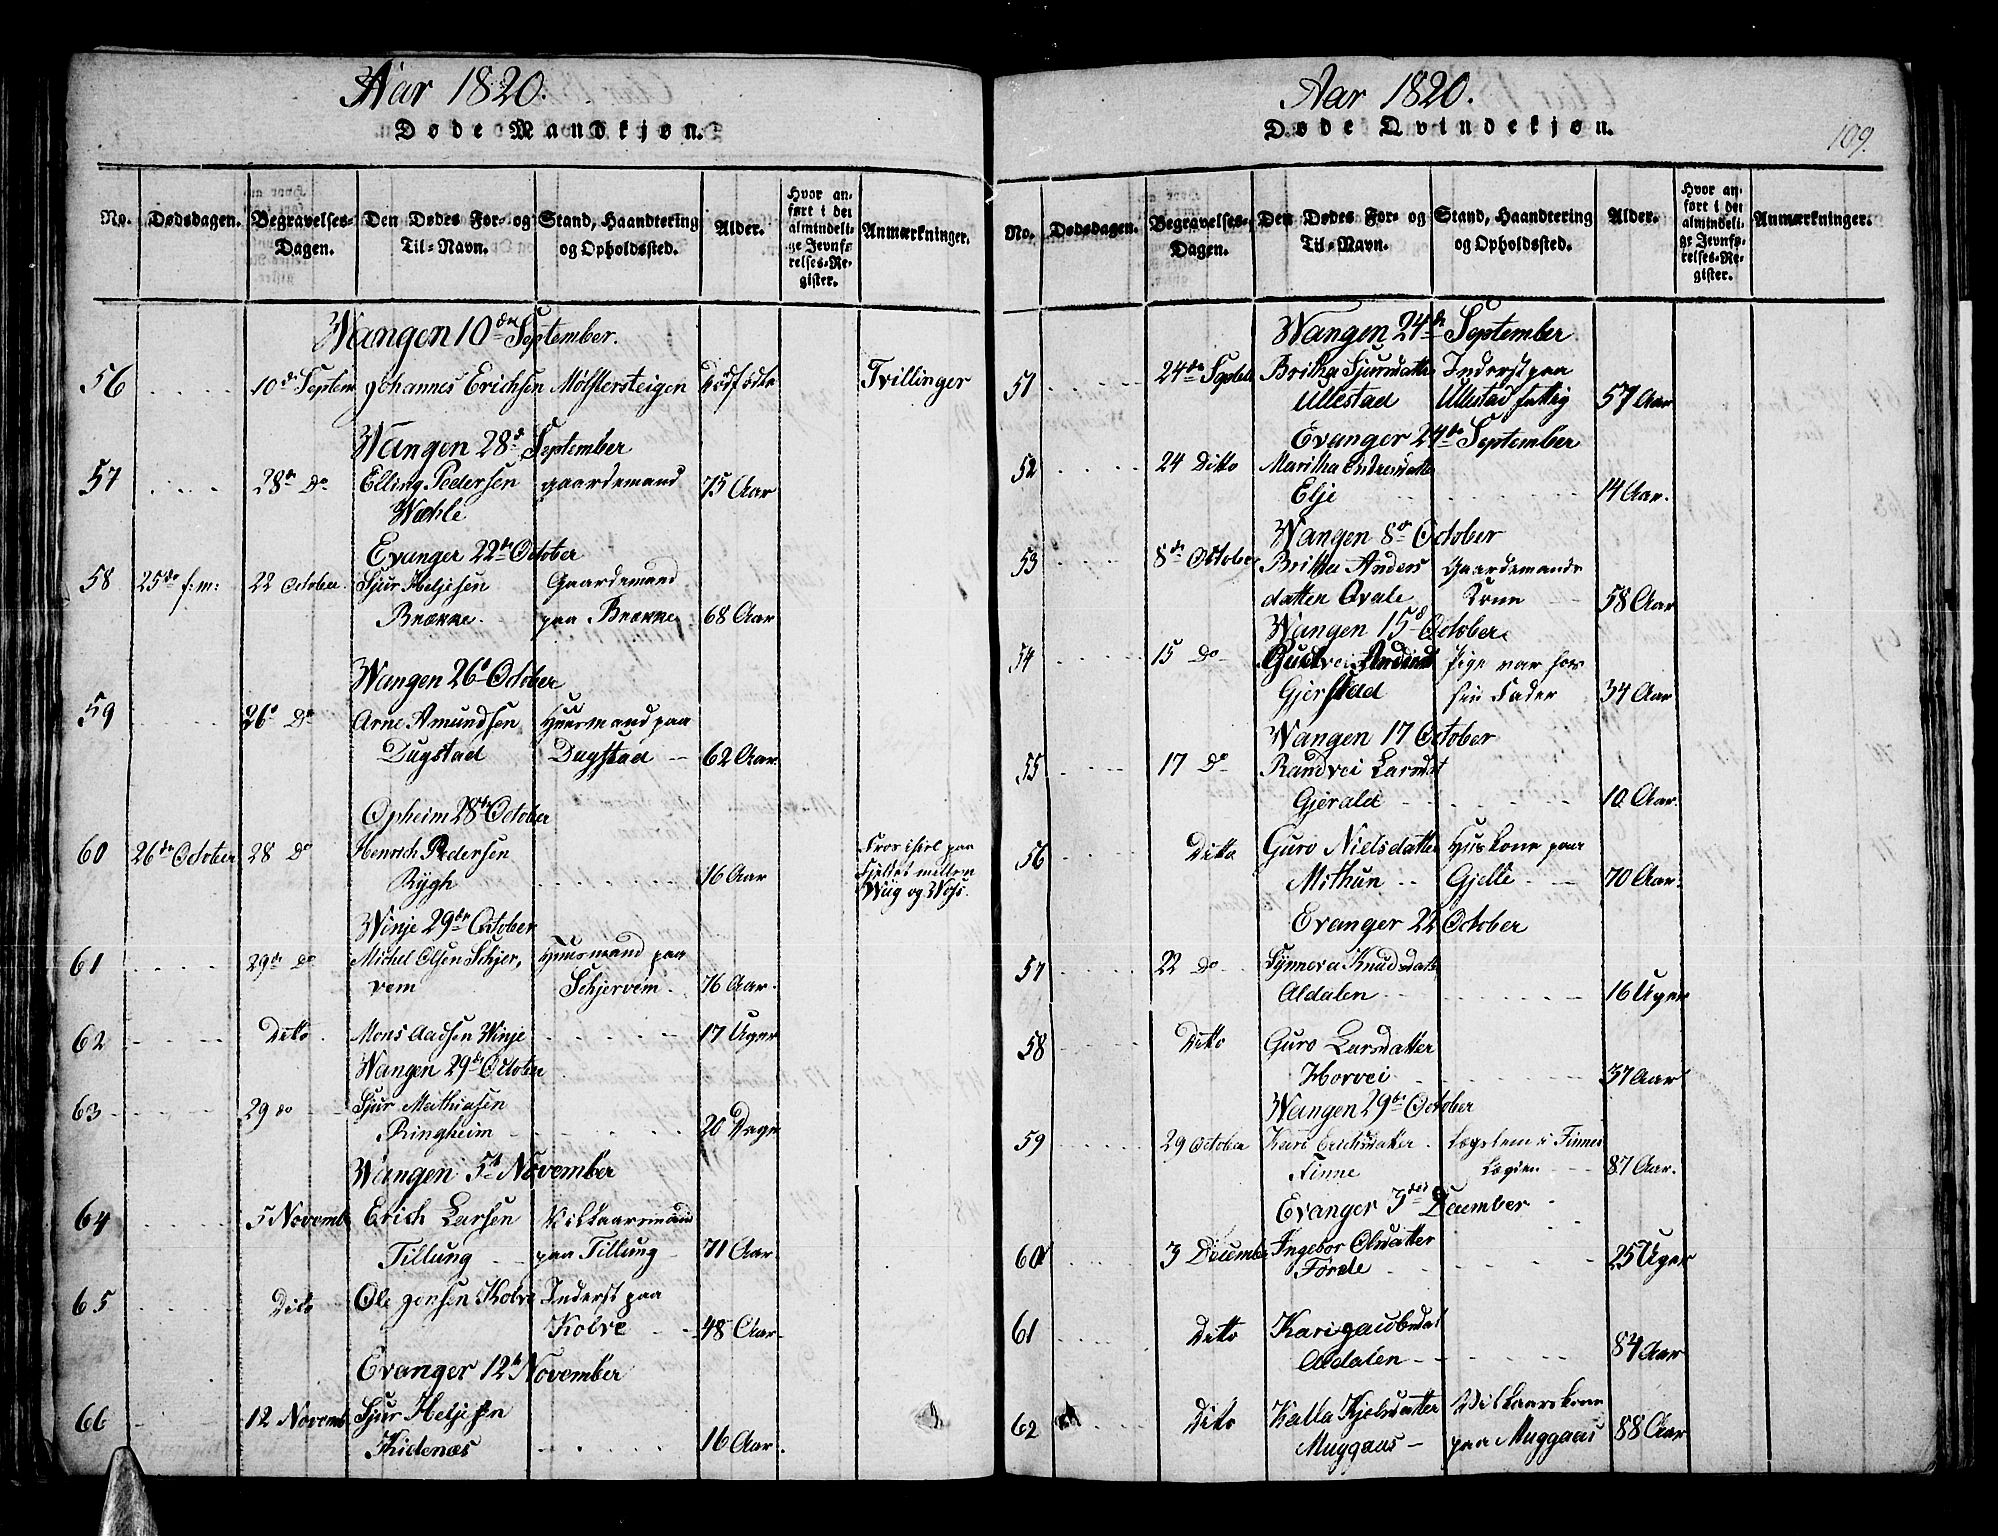 Aar 1820.
Døde Mandkjøn.
No.
Dødsdagen.
Begravelses-Dagen.
Den Dødes For- og Til-Navn.
Stand, Haandtering og Opholdssted.
Alder.
Hvor anført i det almindelige Jevnførelses-Register.
Anmærkninger.
Wangen 10de September.
56 10de Septem Johannes Erichsen Mølstersteigen dødfødte Tvillinger
Wangen 28de September
57 28de Do Elling Pedersen gaardemand 75 Aar
Wæhle
Evanger 22de October
58 25de f:m: 22 October Sjur Heljesen Gaardemand
Brække paa Brække 68 Aar
Wangen 26de October
59 26de Do Arne Amundsen Huusmand paa
Dugstad Dugstad 62 Aar
Opheim 28de October
60 26de October 28 Do Henrich Pedersen paa
Rygh 16 Aar Fjeldet mellem
Wiig og Wos.
Winje 29de October
61 29de Do Michel Olsen Schjer, Huusmand paa
vem Schjervem 76 Aar.
62 Dito Mons Aadsen Winje 17 Uger
Wangen 29de October
63 29 do Sjur Mathiasen
Ringheim 20 Dage
Wangen 5te November
64 5 Novemb Erich Larsen Vilkaarsmand
Tillung paa Tillung 71 Aar
65 Dito Ole Jonsen Kolve Inderst paa
Kolve 48 Aar
Evanger 12te November
66 12 Novemb Sjur Heljesen
Kidenæs 16 Aar.
Aar 1820.
Døde Qvindekjøn.
109.
No.
Dødsdagen.
Begravelses-Dagen.
Den Dødes For- og Til-Navn.
Stand, Haandtering og Opholdssted.
Alder.
Hvor anført i det almindelige Jevnførelses-Register.
Anmærkninger.
Wangen 24de September
51 24de Septeb Britha Sjursdatter Inderst paa
Ullestad Ullestad fattig 57 Aar
Evanger 24de September
52 24 Ditto Maritha Endresdatter
Elje 14 Aar.
Wangen 8de October
53 8de October Britta Anders Gaardemands
datter Qvale Kone 58 Aar
Wangen 15de October
54 15 Do Gudvei Pige var hos
Gjerstad sin Fader 34 Aar
Wangen 17 October
55 17 Do Randvei Larsdat
Gjerald 10 Aar.
56 Ditto Guro Nielsdatter Huskone paa
Mithun Gjelle 70 Aar.
Evanger 22 October
57 22 Do Synneva Knudsdatt
Aldalen 16 Uger
58 Ditto Guro Larsdatter
Horvei 37 Aar
Wangen 29de October
59 29 October Kari Erichsdatter Lægslem i Finne
Finne Lægien 87 Aar.
Evanger 3die December
60 3 December Ingebor Olsdatter
Førde 25 Uger
61 Ditto Kari Jacobsdat
Aldalen 84 Aar
62 Dito Kalla Kjelsdatter Vilkaarskone
Muggaas paa Muggaas 88 Aar